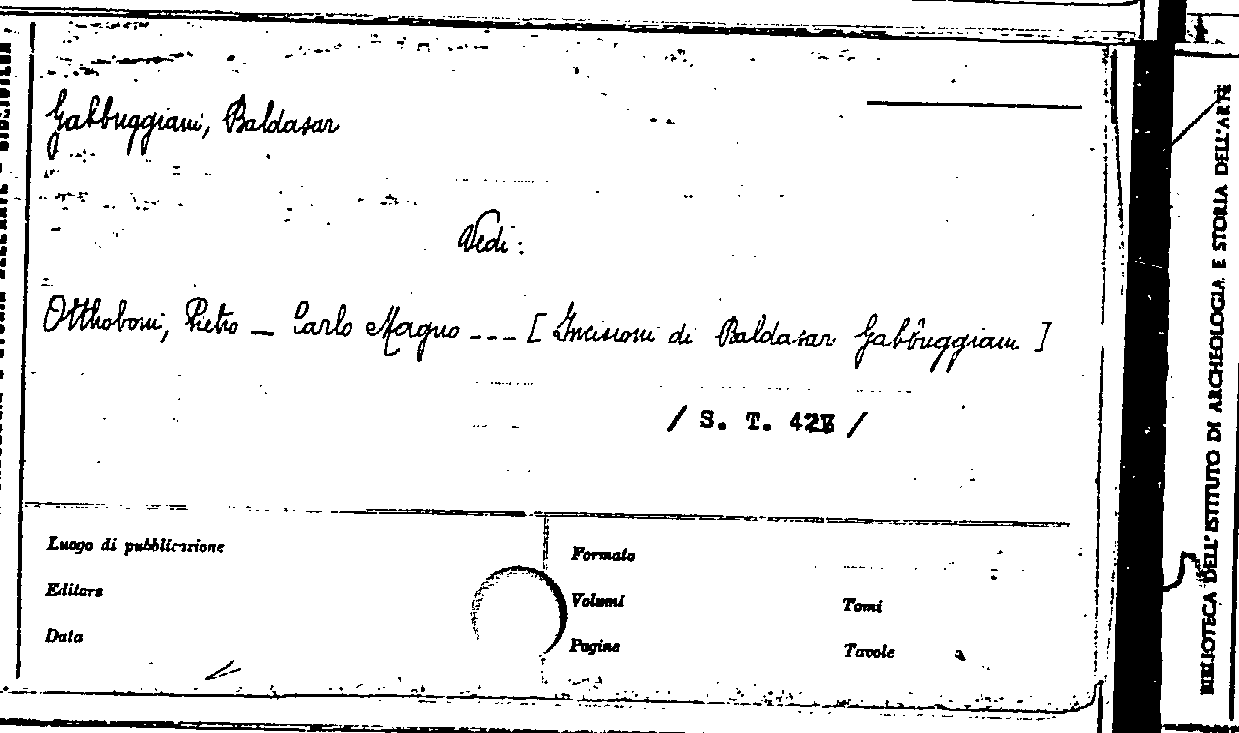 Gabbuggiani, Baldasar
Vedi:
Otthoboni, Pietro — Carlo Magno --- [ Incisioni di Baldasar Gabbuggiani ]
/ S. T. 42 /
Luogo di pubblicazione
Formato
Editore
Volumi
Tomi
Data
Pagine
Tavole
BIBLIOTECA DELL'ISTITUTO DI ARCHEOLOGIA E STORIA DELL'ARTE